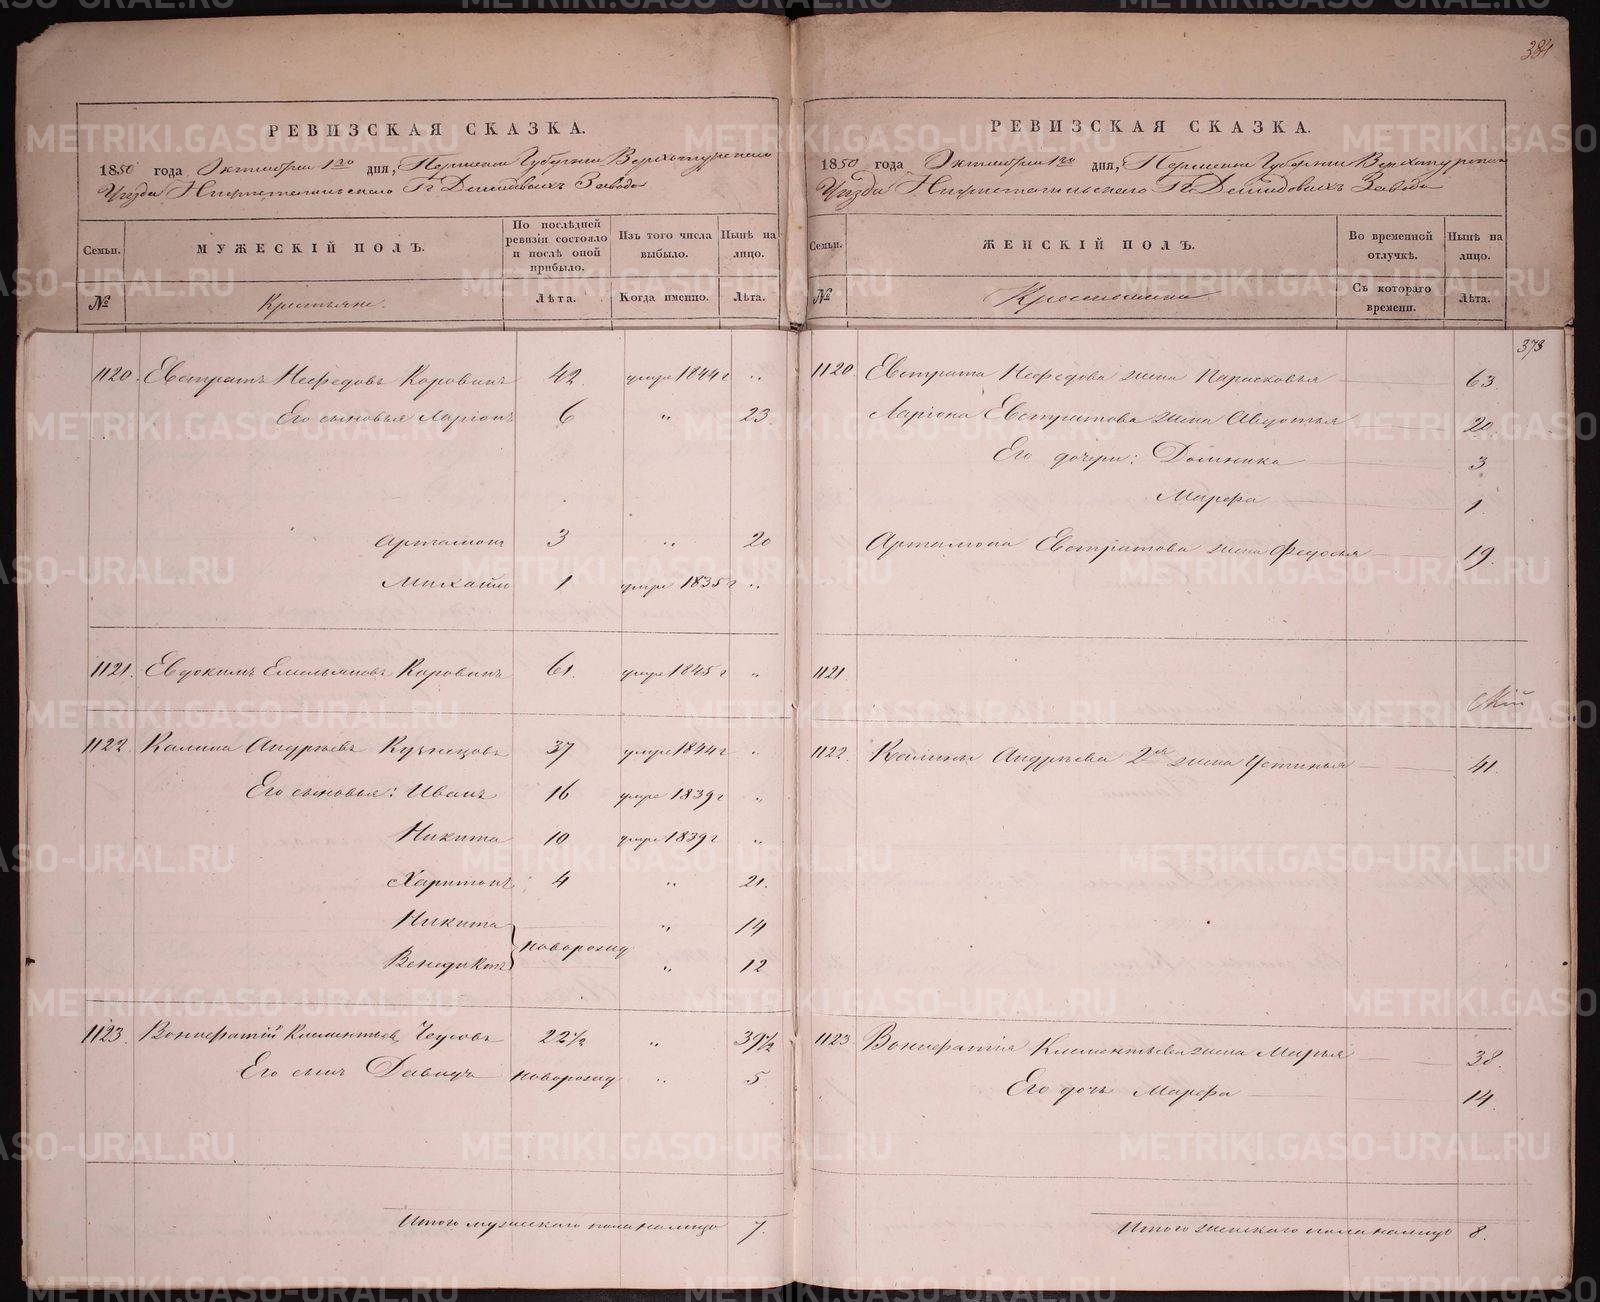 РЕВИЗСКАЯ СКАЗКА.
1850 года Октября 1го дня, Пермской Губернии Верхотурского
Уезда Нижнетагильского Гг Демидовыхъ Завода
Семьи.
МУЖЕСКІЙ ПОЛЪ.
По послѣдней ревизіи состояло и послѣ оной прибыло.
Изъ того числа выбыло.
Нынѣ на лицо.
№
Крестьяне.
Лѣта.
Когда именно.
Лѣта.
1120. Евстратъ Нефедовъ Коровинъ 42. умре 1844 г "
Его сыновья Ларіонъ 6 " 23.
Артамонъ 3 " 20
Михайло 1 умре 1835 г "
1121. Евдокимъ Емельяновъ Коровинъ 61. умре 1845 г "
1122. Калина Андрѣевъ Кузнецовъ 37 умре 1844 г "
Его сыновья: Иванъ 16 умре 1839 г "
Никита 10 умре 1839 г "
Харитонъ 4 " 21.
Никита " 14
новорожд
Венедиктъ " 12
1123. Вонифатій Климентьевъ Чусовъ 22 1/2 " 39 1/2
Его сынъ Давидъ новорожд " 5
Итого мужескаго пола налицо 7.
384
РЕВИЗСКАЯ СКАЗКА.
1850 года Октября 1го дня, Пермской Губерніи Верхотурскаго
Уезда Нижнетагильского Гг Демидовыхъ Завода
Семьи.
ЖЕНСКІЙ ПОЛЪ.
Во временной отлучкѣ.
Нынѣ на лицо.
№
Съ котораго времени.
Лѣта.
373
1120. Евстрата Нефедова жена Парасковья 63.
Ларіона Евстратова жена Авдотья 20
Его дочери: Домника 3
Марфа 1.
Артамона Евстратова жена Федосья 19.
1121.
1122. Калины Андрѣева 2я жена Устинья 41.
1123. Вонифатія Климентьева жена Марья 38.
Его дочь Марфа 14.
Итого женскаго пола налицо 8.
METRIKI.GASO-URAL.RU